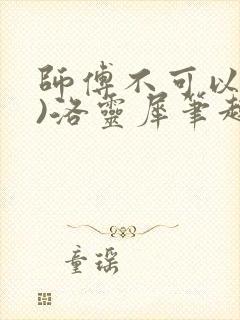 師傅不可以
)洛靈犀筆趣
童瑤